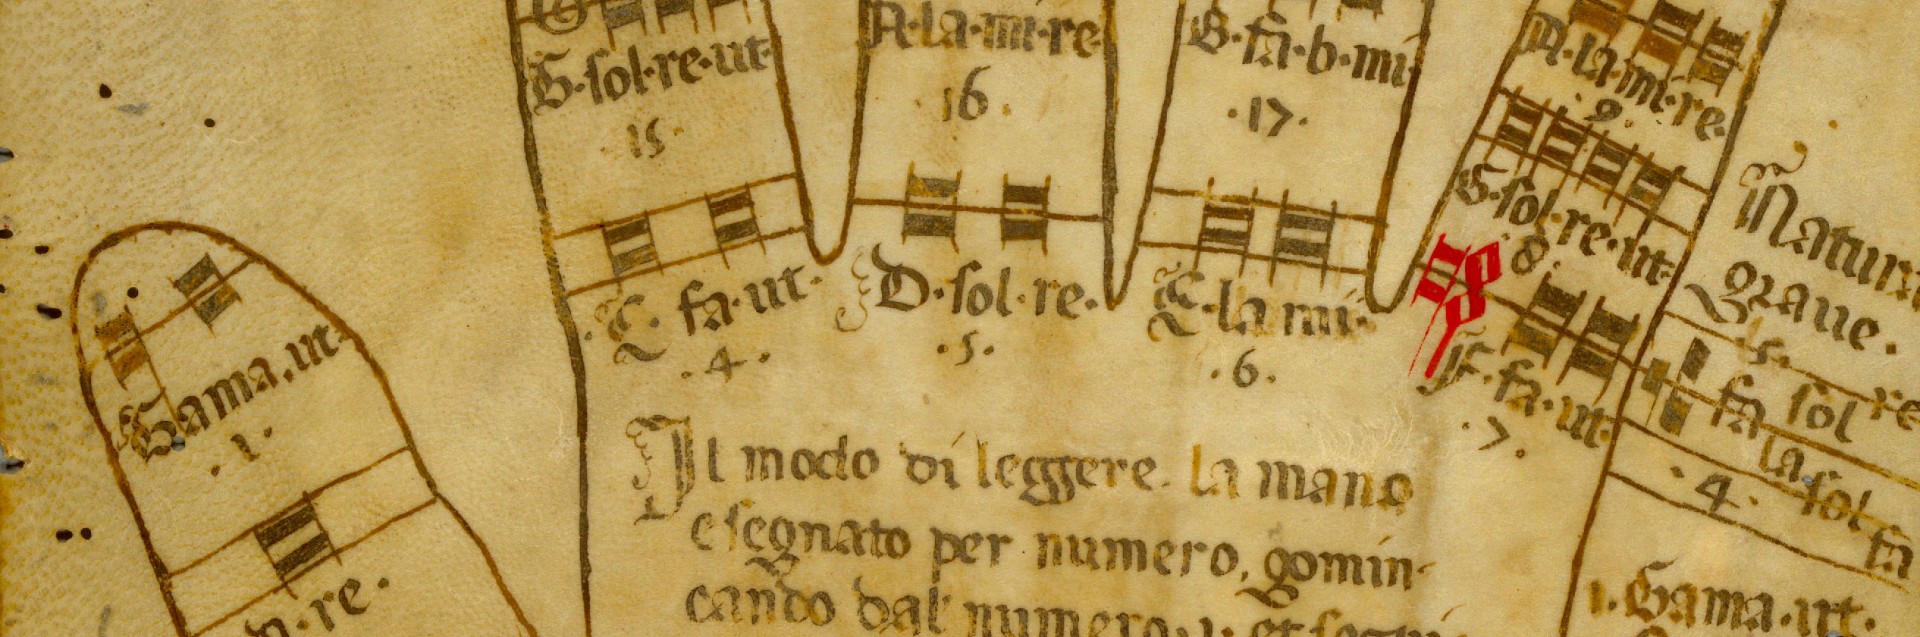 G·sol·re·ut·
15·
A·la·mi·re·
·16·
B·fa·b·mi·
·17·
A·la·mi·re·
·9·
G·sol·re·ut·
·8·
Natura
graue·
·C·fa·ut·
·4·
D·sol·re·
·5·
E·la mi·
·6·
F·fa·ut·
·7·
Gama·ut·
·1·
fa sol re
la sol
·4· sol fa
Il modo di leggere la mano
e segnato per numero, gomin-
cando dal numero ·1· et
·re·
1· Gama·ut·